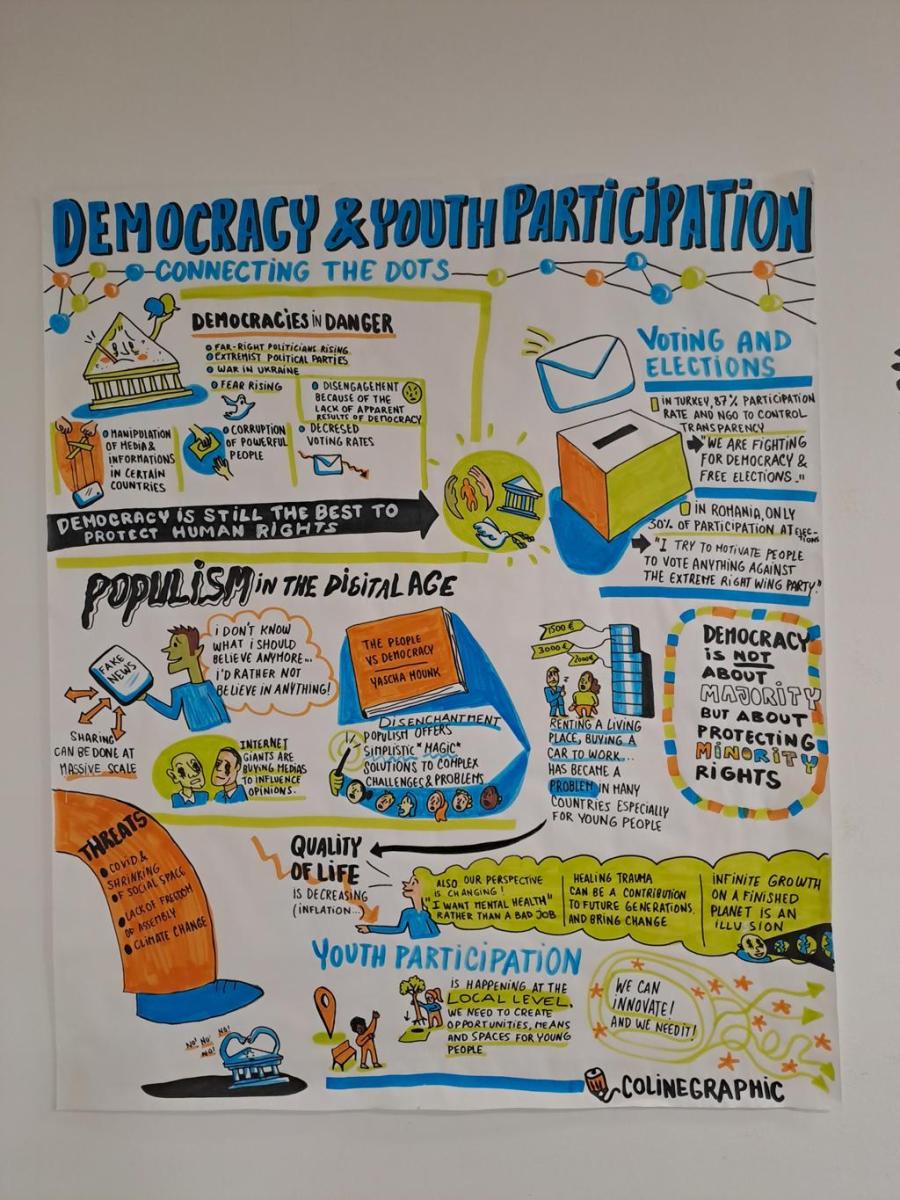 DEMOCRACY & YOUTH PARTICIPATION
CONNECTING THE DOTS
DEMOCRACIES IN DANGER
FAR-RIGHT POLITICIANS RISING
EXTREMIST POLITICAL PARTIES
WAR IN UKRAINE
FEAR RISING
DISENGAGEMENT
BECAUSE OF THE
LACK OF APPARENT
RESULTS OF DEMOCRACY
MANIPULATION
OF MEDIA &
INFORMATIONS
IN CERTAIN
COUNTRIES
CORRUPTION
OF POWERFUL
PEOPLE
DECRESED
VOTING RATES
DEMOCRACY IS STILL THE BEST TO
PROTECT HUMAN RIGHTS
VOTING AND
ELECTIONS
IN TURKEY, 87% PARTICIPATION
RATE AND NGO TO CONTROL
TRANSPARENCY
"WE ARE FIGHTING
FOR DEMOCRACY &
FREE ELECTIONS."
IN ROMANIA, ONLY
30% OF PARTICIPATION AT ELEC-
TIONS
"I TRY TO MOTIVATE PEOPLE
TO VOTE ANYTHING AGAINST
THE EXTREME RIGHT WING PARTY."
POPULISM IN THE DIGITAL AGE
FAKE
NEWS
I DON'T KNOW
WHAT I SHOULD
BELIEVE ANYMORE...
I'D RATHER NOT
BELIEVE IN ANYTHING!
SHARING
CAN BE DONE AT
MASSIVE SCALE
INTERNET
GIANTS ARE
BUYING MEDIAS
TO INFLUENCE
OPINIONS.
THE PEOPLE
VS DEMOCRACY
YASCHA MOUNK
DISENCHANTMENT
POPULISM OFFERS
SIMPLISTIC "MAGIC"
SOLUTIONS TO COMPLEX
CHALLENGES & PROBLEMS
1500 €
3000 €
2000€
RENTING A LIVING
PLACE, BUYING A
CAR TO WORK...
HAS BECAME A
PROBLEM IN MANY
COUNTRIES ESPECIALLY
FOR YOUNG PEOPLE
DEMOCRACY
IS NOT
ABOUT
MAJORITY
BUT ABOUT
PROTECTING
MINORITY
RIGHTS
THREATS
COVID &
SHRINKING
OF SOCIAL SPACE
LACK OF FREEDOM
OF ASSEMBLY
CLIMATE CHANGE
NO! NO! NO!
NO!
QUALITY
OF LIFE
IS DECREASING
(INFLATION...
ALSO OUR PERSPECTIVE
IS CHANGING!
"I WANT MENTAL HEALTH"
RATHER THAN A BAD JOB
HEALING TRAUMA
CAN BE A CONTRIBUTION
TO FUTURE GENERATIONS
AND BRING CHANGE
INFINITE GROWTH
ON A FINISHED
PLANET IS AN
ILLUSION
YOUTH PARTICIPATION
IS HAPPENING AT THE
LOCAL LEVEL.
WE NEED TO CREATE
OPPORTUNITIES, MEANS
AND SPACES FOR YOUNG
PEOPLE
WE CAN
INNOVATE!
AND WE NEED IT!
COLINEGRAPHIC